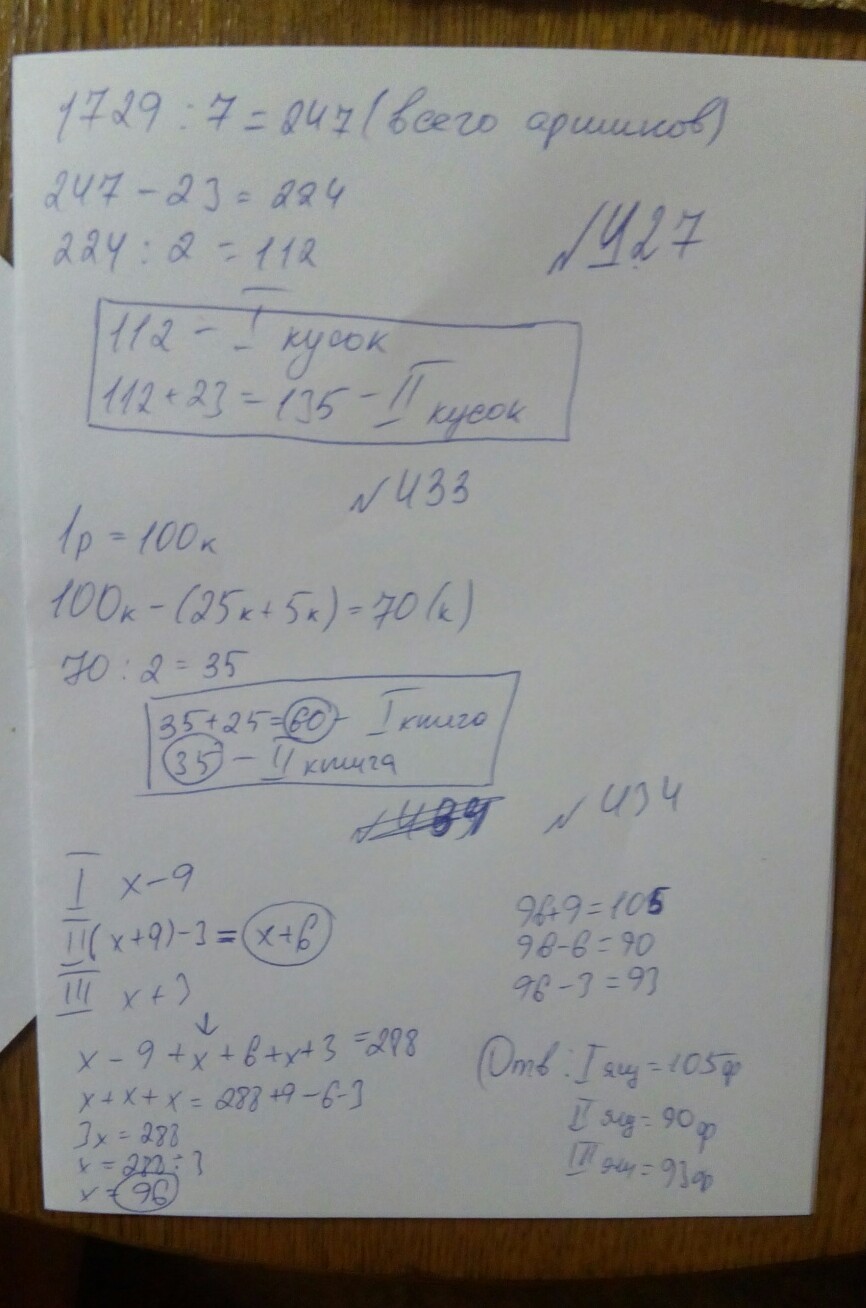 1729 : 7 = 247 (всего аршинов)
247 - 23 = 224
224 : 2 = 112
№427
112 - I кусок
112 + 23 = 135 - II кусок
№433
1р = 100к
100к - (25к + 5к) = 70(к)
70 : 2 = 35
35 + 25 = 60 - I книга
35 - II книга
№434
I x - 9
II (x + 9) - 3 = x + 6
III x + 3
x - 9 + x + 6 + x + 3 = 288
x + x + x = 288 + 9 - 6 - 3
3x = 288
x = 288 : 3
x = 96
96 + 9 = 105
96 - 6 = 90
96 - 3 = 93
Отв: I ящ = 105ф
II ящ = 90ф
III ящ = 93ф